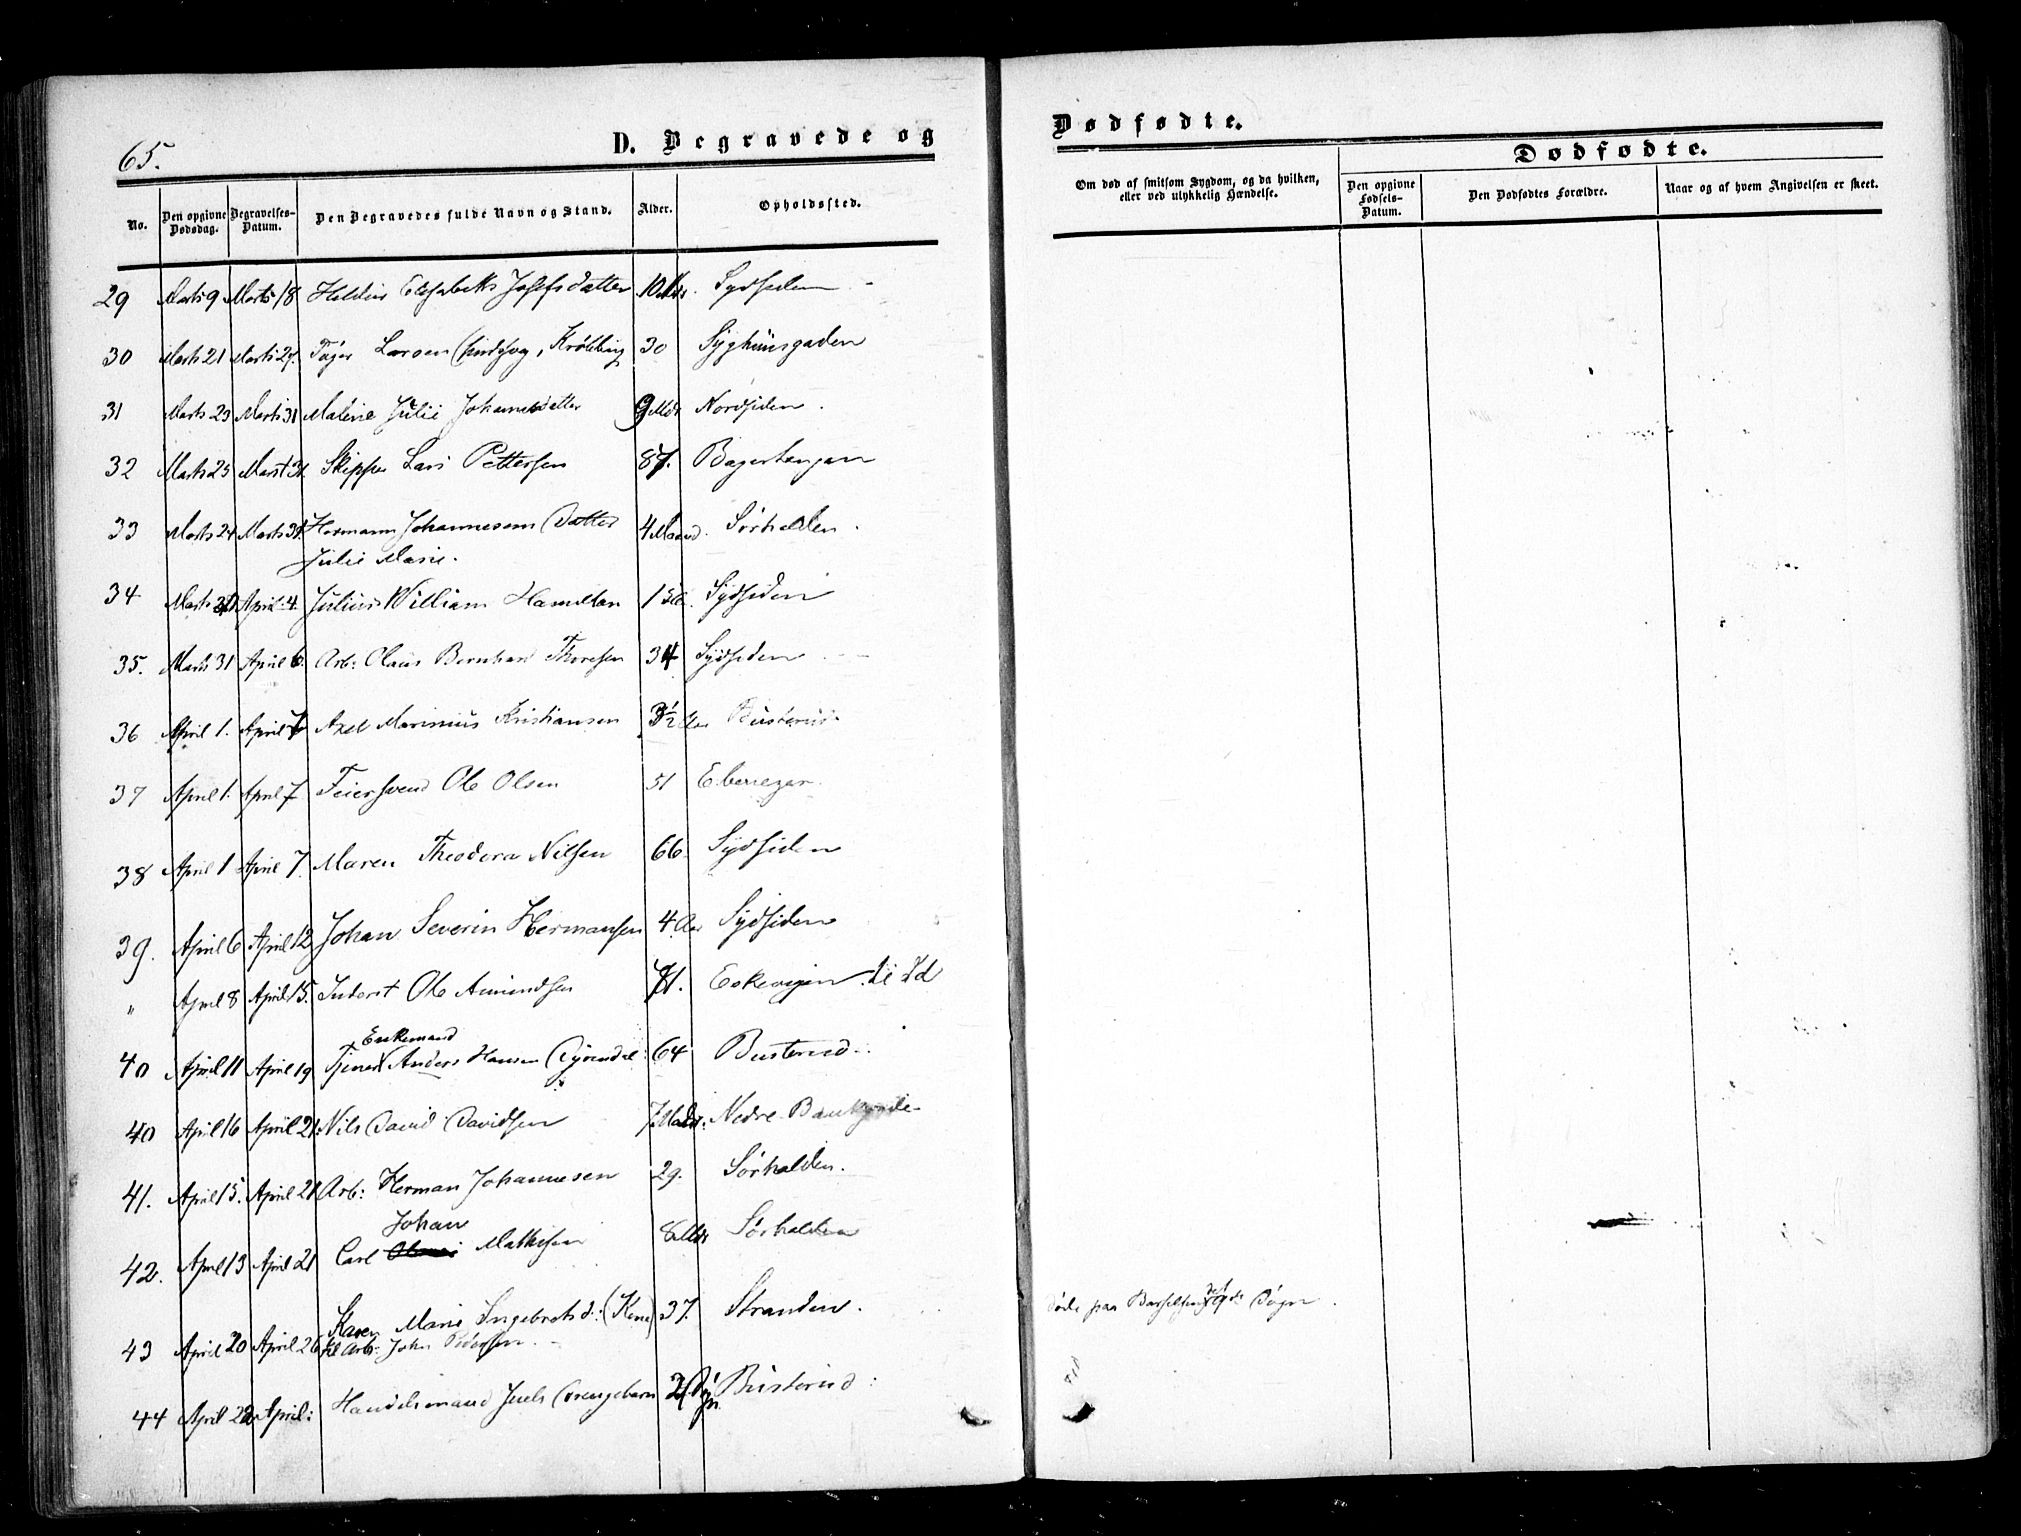 65.
D. Begravede og
Dødfødte.
No.
Den opgivne Dødsdag.
Begravelses-Datum.
Den Begravedes fulde Navn og Stand.
Alder.
Opholdssted.
Om død af smitsom Sygdom, og da hvilken, eller ved ulykkelig Hændelse.
Dødfødte.
Den opgivne Fødsels-Datum.
Den Dødfødtes Forældre.
Naar og af hvem Angivelsen er skeet.
29 Marts 9 Marts 18 Elisabeth Josefsdatter 10 Mdr. Sydsiden
30 Marts 21 Marts 27. Larsen 30 Syghuusgaden
31 Marts 23 Marts 31 Malene Julie Johannesdatter 9 Mdr Nordsiden.
32 Marts 25 Marst 31. Skipper Lars Pettersen 87. Bagerhougen
33 Marts 24 Marts 31. Hermann Johannesens Datter 4 Maaned. Sørhalden.
Julie Marie.
34 Marts April 4. Julius William Hamilton 1 Sydsiden
35. Marts 31 April 6. Arb: Olaus Bernhard Thoresen 34 Sydsiden
36 April 1. April 7 Axel Marinius Kristiansen 3½ Busterud.
37 April 1. April 7 Feiersvend Ole Olsen 51
38 April 1 April 7. Maren Theodora Nilsen 66. Sydsiden
39. April 6 April 12 Johan Severin Hermansen 4 Aar Sydsiden
" April 8 April 15. Inderst Ole Amundsen 71. Eskevigen i Id
Enkemand
40 April 11 April 19 Tjener Anders Hansen 64 Busterud.
40 April 16 April 21. Nils David Davidsen 7 Mdr: Nedre Bankgade
41. April 15. April 21 Arb: Herman Johannesen 29. Sørhalden.
Johan
42. April 13 April 21 Carl Mathisen 8 Mdr Sørhalden
Karen Marie Ingebretsd: (Kone) 37. Stranden. Døde paa Barselseng Døgn.
43 April 20 April 26 til Arb: John Pedersen.
44 April 22 April: Handelsmand Juels Drengebarn 2 Døgn Busterud.